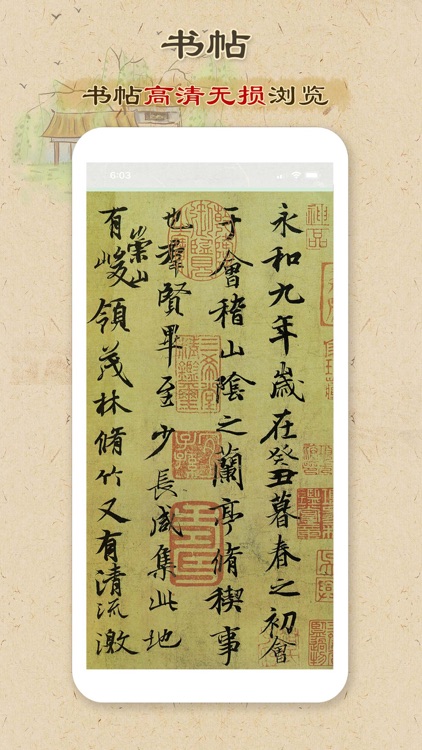 书帖
书帖高清无损浏览
6:03
永和九年歲在癸丑暮春之初會
于會稽山陰之蘭亭脩稧事
也羣賢畢至少長咸集此地
有崇山峻領茂林脩竹又有清流激
神品